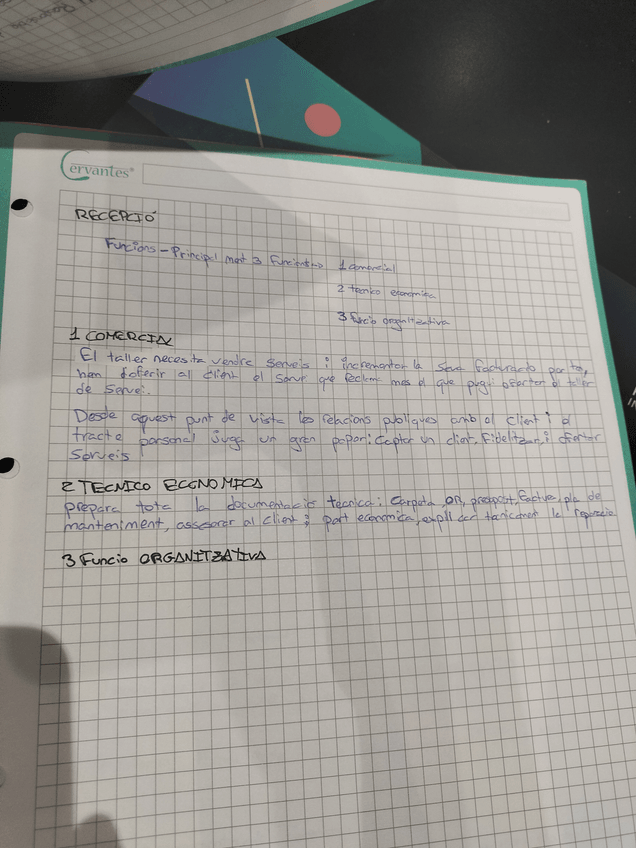 Cervantes
RECEPCIÓ
Funcions - Principal ment 3 Funcions-> 1 comercial
2 tecnico economica
3 funcio organitzativa
1 COMERCIAL
El taller necesita vendre serveis i incrementar la seva facturacio per to,
han doferir al client el servei que reclami mes el que pugi ofertar el taller
de servei.
Desde aquest punt de vista les relacions publiques amb el client i el
tracte personal juga un gran paper: Captar un client, Fidelitzar, i ofertar
Serveis
2 TECNICO ECONOMICA
prepara tota la documentacio tecnica: Carpeta, OR, presupost, Factura, pla de
manteniment, assesorar al client i part economica, la reparacio
3 Funcio ORGANITZATIVA